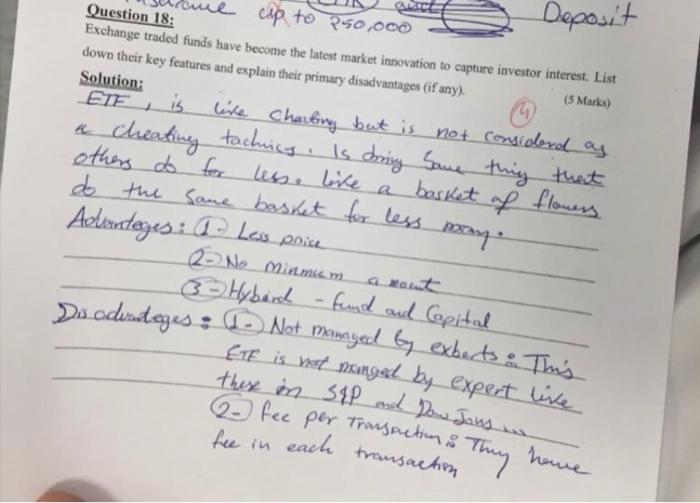 cap to 250,000 and Deposit
Question 18:
Exchange traded funds have become the latest market innovation to capture investor interest. List
down their key features and explain their primary disadvantages (if any).
(5 Marks)
Solution:
4
ETF, is like cheating but is not considered as
a cheating tachnics. Is doing Same thing that
others do for less. like a basket of flowers
do the same basket for less money.
Advanteges: 1- Less price
2- No minmum amount
3- Hybird - fund and Capital
Disadvanteges: 1- Not managed by exberts: This
ETF is not manged by expert like
these in S&P and Dow Jons ...
2- fee per Transaction: They have
fee in each transaction